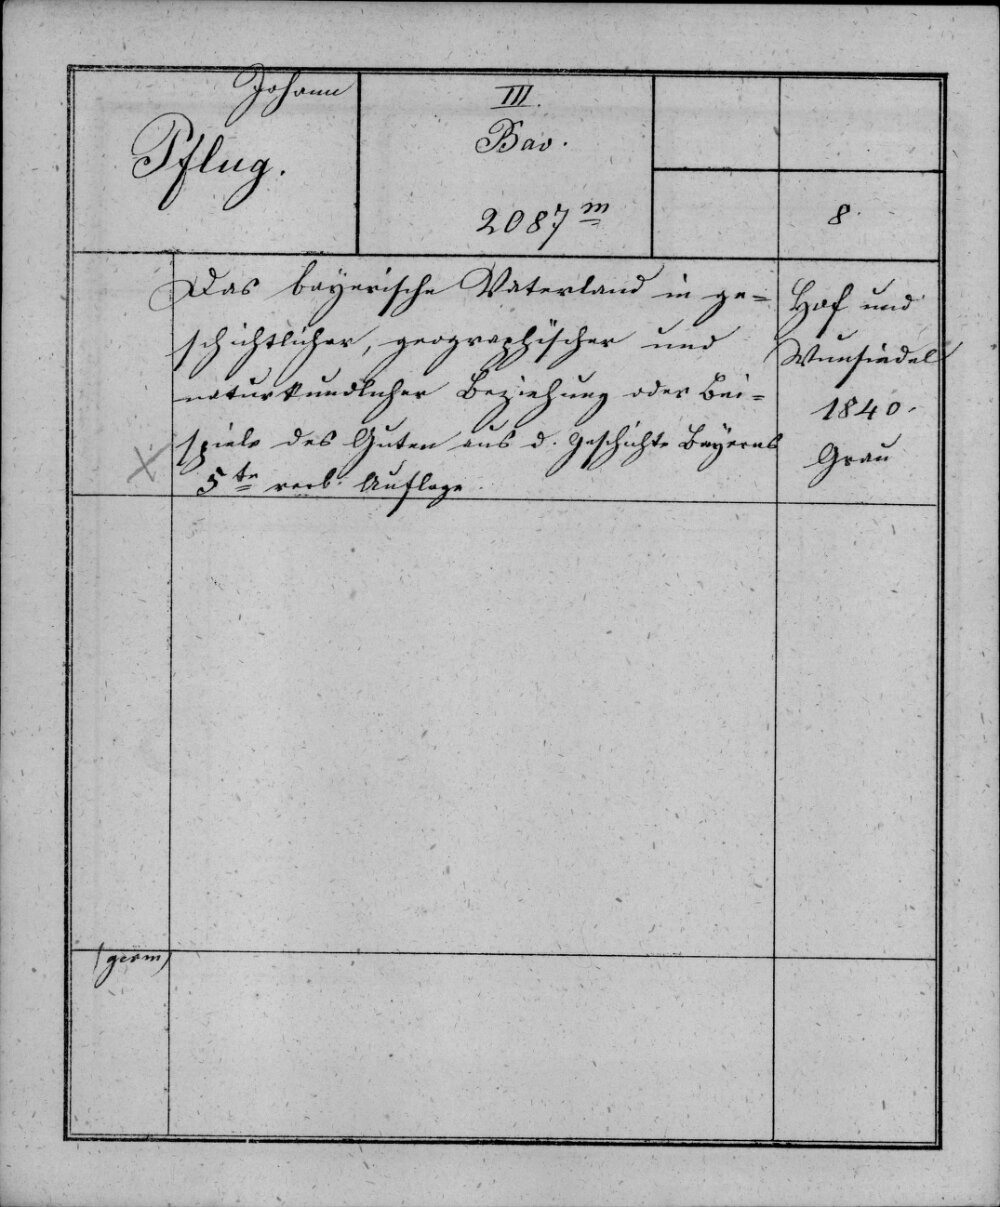 Johann
Pflug.
III.
Bav.
2087 m
8.
Das bayerische Vaterland in ge=
schichtlicher, geographischer und
naturkundlicher Beziehung oder Bei=
spiele des Guten aus d. Geschichte Bayerns
5te verb. Auflage.
Hof und
Wunsiedel
1840.
Grau
(germ)